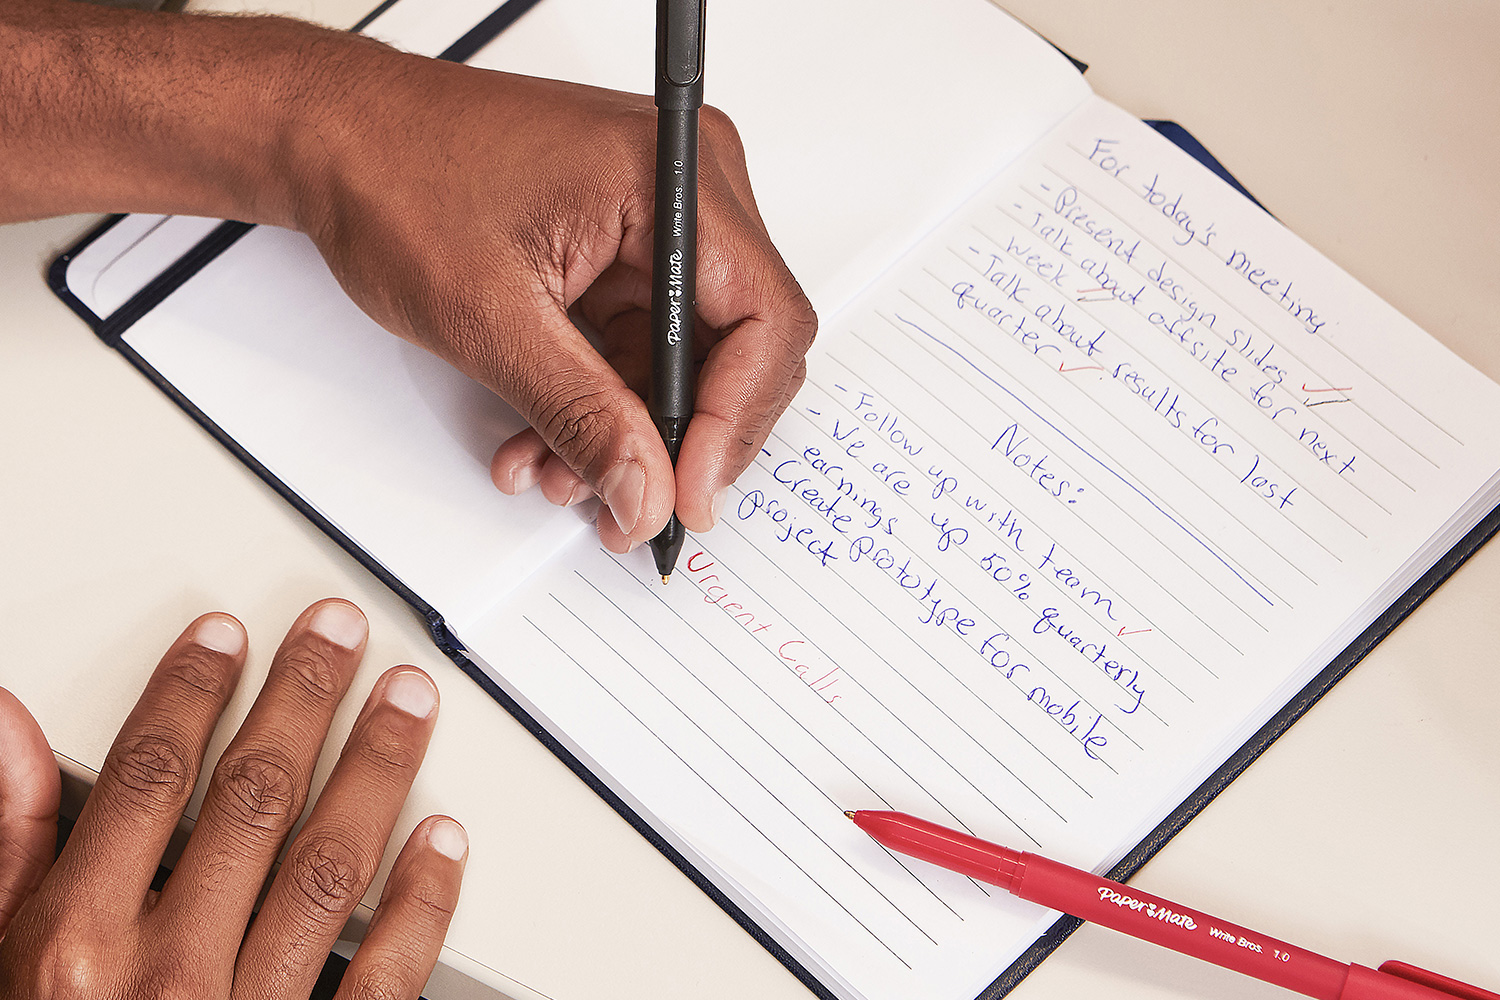 For today's meeting:
- Present design slides ✓✓
- Talk about offsite for next
week ✓
- Talk about results for last
quarter ✓
Notes:
- Follow up with team ✓
- We are up 50% quarterly
earnings
- Create prototype for mobile
project
Urgent Calls
Paper Mate Write Bros. 1.0
Paper Mate Write Bros. 1.0